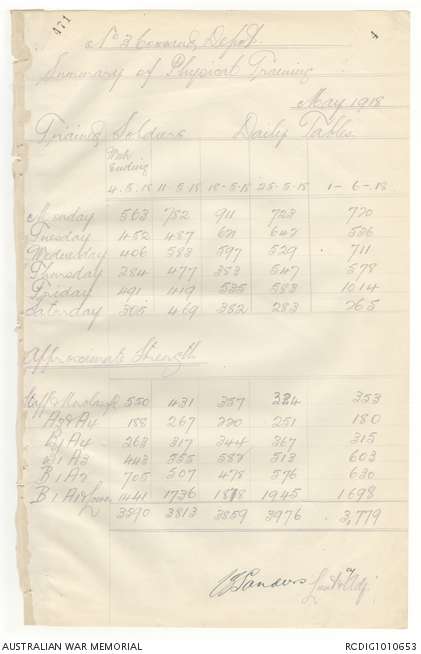 471
4
No 3 Command Depot.
Summary of Physical Training
May 1918
Training Soldiers Daily Tables.
Week Ending
4.5.18 11.5.18 18.5.18 25.5.18 1-6-18
Monday 563 752 911 723 770
Tuesday 452 487 671 642 536
Wednesday 406 583 597 529 711
Thursday 284 477 353 547 578
Friday 491 419 535 583 1014
Saturday 305 469 382 283 265
Approximate Strength
Staff & 550 431 357 324 353
A3 & A4 188 267 220 251 180
B1 A4 263 317 344 367 315
B1 A3 443 555 582 513 603
B1 A2 705 507 478 576 630
B1 A1 1441 1736 1878 1945 1698
3590 3813 3859 3976 3,779
Sanders Lieut & Adj.
AUSTRALIAN WAR MEMORIAL
RCDIG1010653